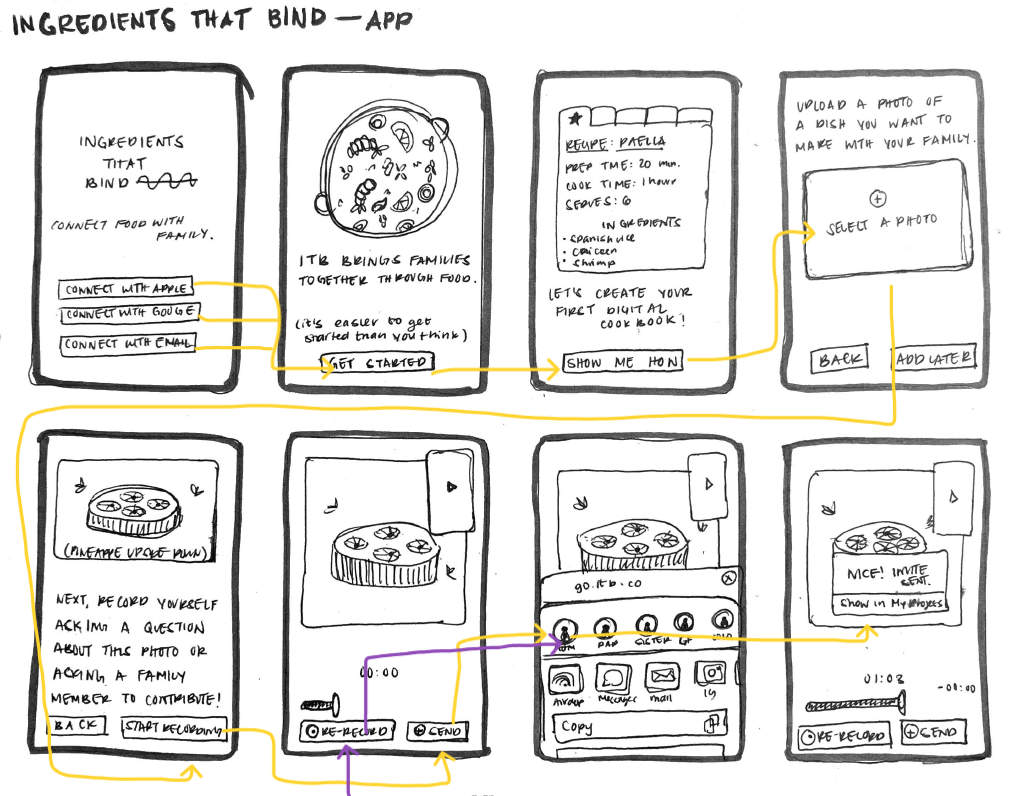 INGREDIENTS THAT BIND — APP
INGREDIENTS
THAT
BIND
CONNECT FOOD WITH
FAMILY.
CONNECT WITH APPLE
CONNECT WITH GOOGE
CONNECT WITH EMAIL
ITB BRINGS FAMILIES
TOGETHER THROUGH FOOD.
(it's easier to get
started than you think)
GET STARTED
RECIPE: PAELLA
PREP TIME: 20 min.
COOK TIME: 1 hour
SERVES: 6
INGREDIENTS
• Spanish rice
• Chicken
• Shrimp
LET'S CREATE YOUR
FIRST DIGITAL
COOKBOOK!
SHOW ME HOW
UPLOAD A PHOTO OF
A DISH YOU WANT TO
MAKE WITH YOUR FAMILY.
SELECT A PHOTO
BACK
ADD LATER
(PINEAPPLE UPSIDE DOWN)
NEXT, RECORD YOURSELF
ASKING A QUESTION
ABOUT THIS PHOTO OR
ASKING A FAMILY
MEMBER TO CONTRIBUTE!
BACK
START RECORDING
00:00
RE-RECORD
SEND
go.itb.co
MOM
DAD
SISTER
GF
Airdrop
Messages
mail
IG
Copy
NICE! INVITE
SENT.
Show in My Projects
01:03
-00:00
RE-RECORD
SEND